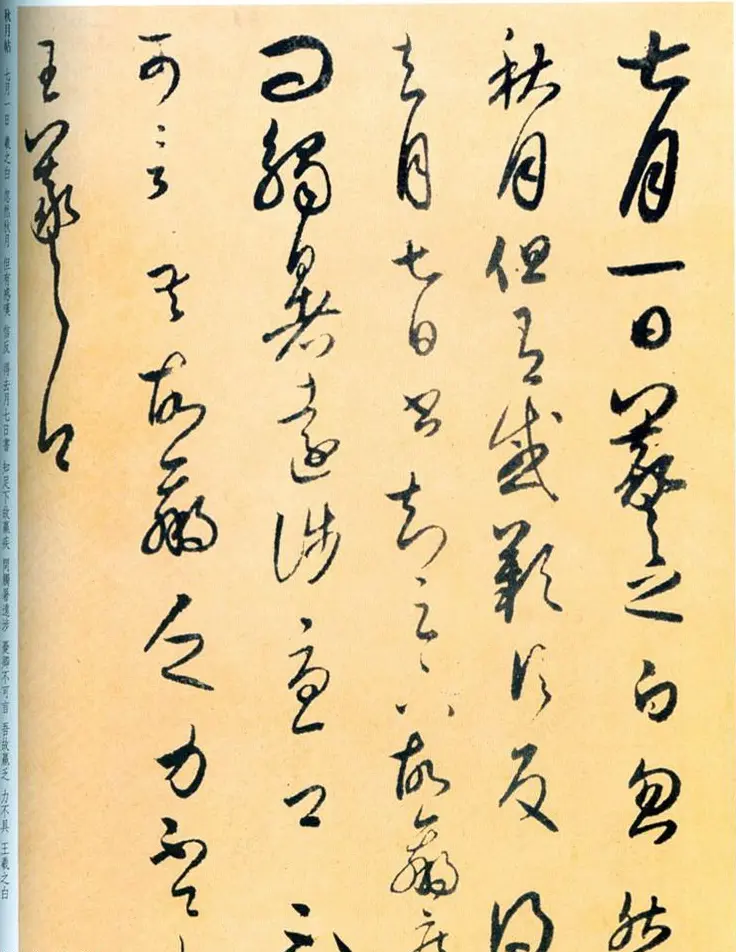 七月一日羲之白忽然
秋月但有感歎信反得
去月七日書知足下故羸疾
問觸暑遠涉憂卿不
可言吾故羸乏力不具
王羲之白
秋月帖 七月一日 羲之白 忽然秋月 但有感嘆 信反 得去月七日書 知足下故羸疾 問觸暑遠涉 憂卿不可言 吾故羸乏 力不具 王羲之白